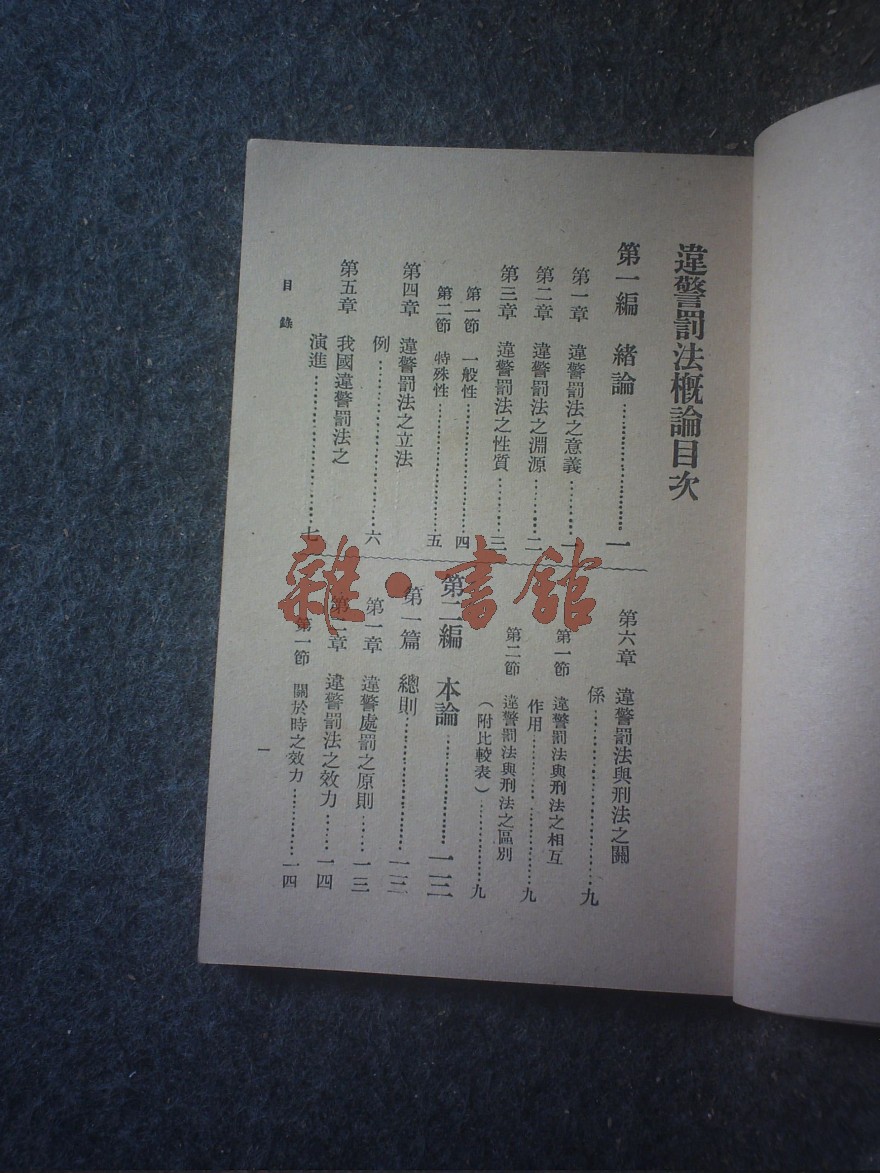 違警罰法概論目次
第一編　緒論……………………一
第一章　違警罰法之意義………一
第二章　違警罰法之淵源………二
第三章　違警罰法之性質………三
第一節　一般性…………………四
第二節　特殊性…………………五
第四章　違警罰法之立法
例…………………六
第五章　我國違警罰法之
演進…………………七
第六章　違警罰法與刑法之關
係…………………九
第一節　違警罰法與刑法之相互
作用…………………九
第二節　違警罰法與刑法之區別
（附比較表）…………九
第二編　本論……………一三
第一篇　總則……………一三
第一章　違警處罰之原則……一三
第二章　違警罰法之效力……一四
第一節　關於時之效力………一四
目錄
一
雜·書館